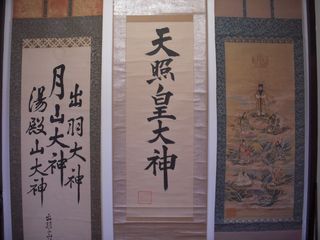 天照皇大神
出羽大神
月山大神
湯殿山大神